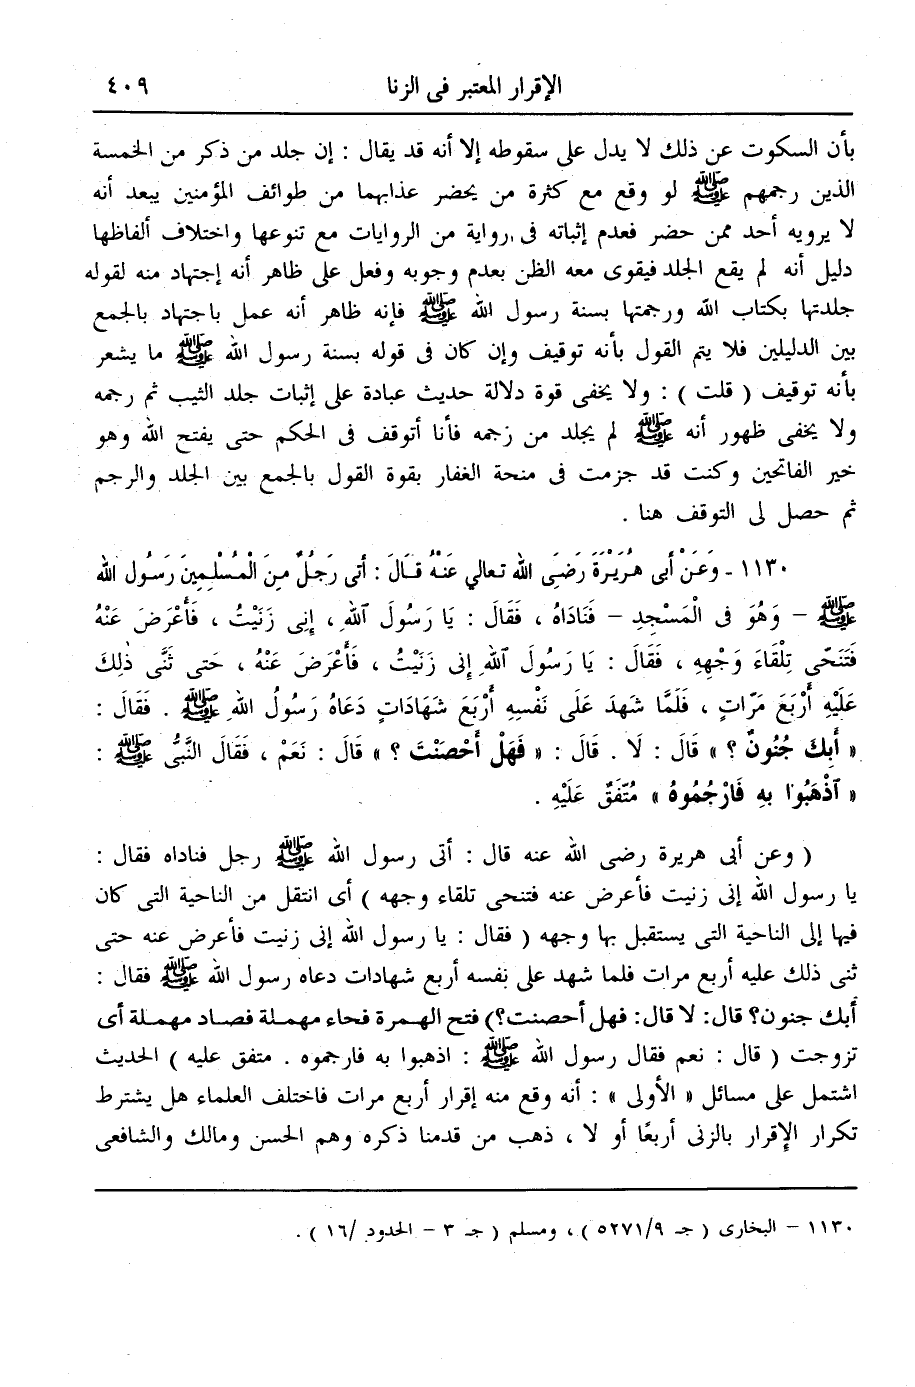 الإقرار المعتبر فى الزنا ٤٠٩
بأن السكوت عن ذلك لا يدل على سقوطه إلا أنه قد يقال : إن جلد من ذكر من الخمسة
الذين رجمهم ﷺ لو وقع مع كثرة من يحضر عذابهما من طوائف المؤمنين يبعد أنه
لا يرويه أحد ممن حضر فعدم إثباته فى رواية من الروايات مع تنوعها واختلاف ألفاظها
دليل أنه لم يقع الجلد فيقوى معه الظن بعدم وجوبه وفعل على ظاهر أنه إجتهاد منه لقوله
جلدتها بكتاب الله ورجمتها بسنة رسول الله ﷺ فإنه ظاهر أنه عمل باجتهاد بالجمع
بين الدليلين فلا يتم القول بأنه توقيف وإن كان فى قوله بسنة رسول الله ﷺ ما يشعر
بأنه توقيف ( قلت ) : ولا يخفى قوة دلالة حديث عبادة على إثبات جلد الثيب ثم رجمه
ولا يخفى ظهور أنه ﷺ لم يجلد من رجمه فأنا أتوقف فى الحكم حتى يفتح الله وهو
خير الفاتحين وكنت قد جزمت فى منحة الغفار بقوة القول بالجمع بين الجلد والرجم
ثم حصل لى التوقف هنا .
١١٣٠ - وَعَنْ أَبى هُرَيْرَةَ رَضِىَ الله تعالي عَنْهُ قَالَ : أتى رَجُلٌ مِنَ الْمُسْلِمِينَ رَسُولَ الله
ﷺ - وَهُوَ فى الْمَسْجِدِ - فَنَادَاهُ ، فَقَالَ : يَا رَسُولَ ٱللهِ ، إِنِى زَنَيْتُ ، فَأَعْرَضَ عَنْهُ
فَتَنَحّى تِلْقَاءَ وَجْهِهِ ، فَقَالَ : يَا رَسُولَ ٱللهِ إِنى زَنَيْتُ ، فَأَعْرَضَ عَنْهُ ، حَتى ثَنَّى ذٰلِكَ
عَلَيْهِ أَرْبَعَ مَرّاتٍ ، فَلَمَّا شَهِدَ عَلَى نَفْسِهِ أَرْبَعَ شَهَادَاتٍ دَعَاهُ رَسُولُ اللهِ ﷺ . فَقَالَ :
« أَبِكَ جُنُونٌ ؟ » قَالَ : لَا . قَالَ : « فَهَلْ أَحْصَنْتَ ؟ » قَالَ : نَعَمْ ، فَقَالَ النَّبِىُّ ﷺ :
« ٱذْهَبُوا بِهِ فَارْجُمُوهُ » مُتّفَقٌ عَلَيْهِ .
( وعن أبى هريرة رضى الله عنه قال : أتى رسول الله ﷺ رجل فناداه فقال :
يا رسول الله إنى زنيت فأعرض عنه فتنحى تلقاء وجهه ) أى انتقل من الناحية التى كان
فيها إلى الناحية التى يستقبل بها وجهه ( فقال : يا رسول الله إنى زنيت فأعرض عنه حتى
ثنى ذلك عليه أربع مرات فلما شهد على نفسه أربع شهادات دعاه رسول الله ﷺ فقال :
أبك جنون؟ قال: لا قال: فهل أحصنت؟) فتح الهمرة فحاء مهملة فصاد مهملة أى
تزوجت ( قال : نعم فقال رسول الله ﷺ : اذهبوا به فارجموه . متفق عليه ) الحديث
اشتمل على مسائل « الأولى » : أنه وقع منه إقرار أربع مرات فاختلف العلماء هل يشترط
تكرار الإقرار بالزنى أربعًا أو لا ، ذهب من قدمنا ذكره وهم الحسن ومالك والشافعى
١١٣٠ - البخارى ( جـ ٥٢٧١/٩ ) ، ومسلم ( جـ ٣ - الحدود /١٦ ) .